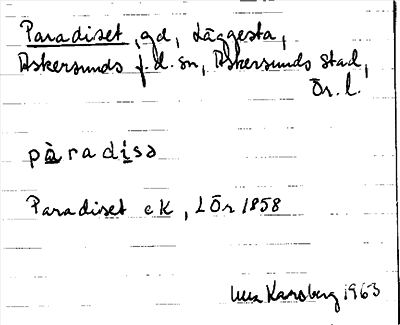 Paradiset, gd, Läggesta,
Askersunds f.d. sn, Askersunds stad,
Ör. l.
pàradi̲sə
Paradiset ek, LÖr 1858
Karsberg 1963